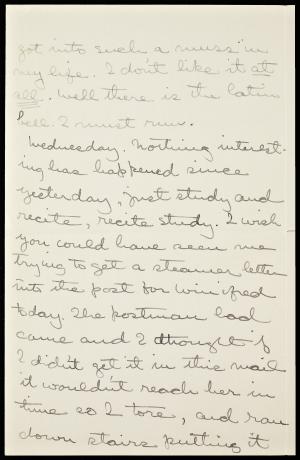 got into such a muss in
my life. I don't like it at
all. Well there is the Latin
bell. I must run.
Wednesday. Nothing interest-
ing has happened since
yesterday, just study and
recite, recite study. I wish
you could have seen me
trying to get a steamer letter
into the post for Winifred
today. The postman had
came and I thought if
I didn't get it in this mail
it wouldn't reach her in
time so I tore, and ran
down stairs putting it